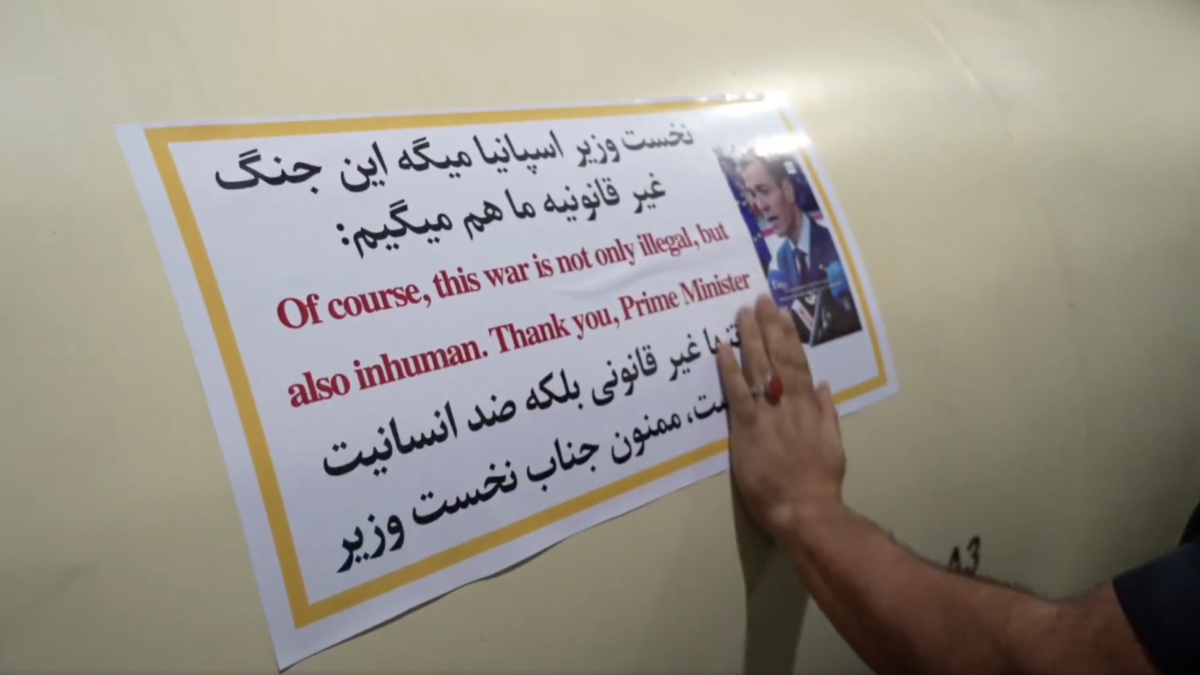 نخست وزیر اسپانیا میگه این جنگ
غیر قانونیه ما هم میگیم:
Of course, this war is not only illegal, but
also inhuman. Thank you, Prime Minister
غیر قانونی بلکه ضد انسانیت
ممنون جناب نخست وزیر
A3